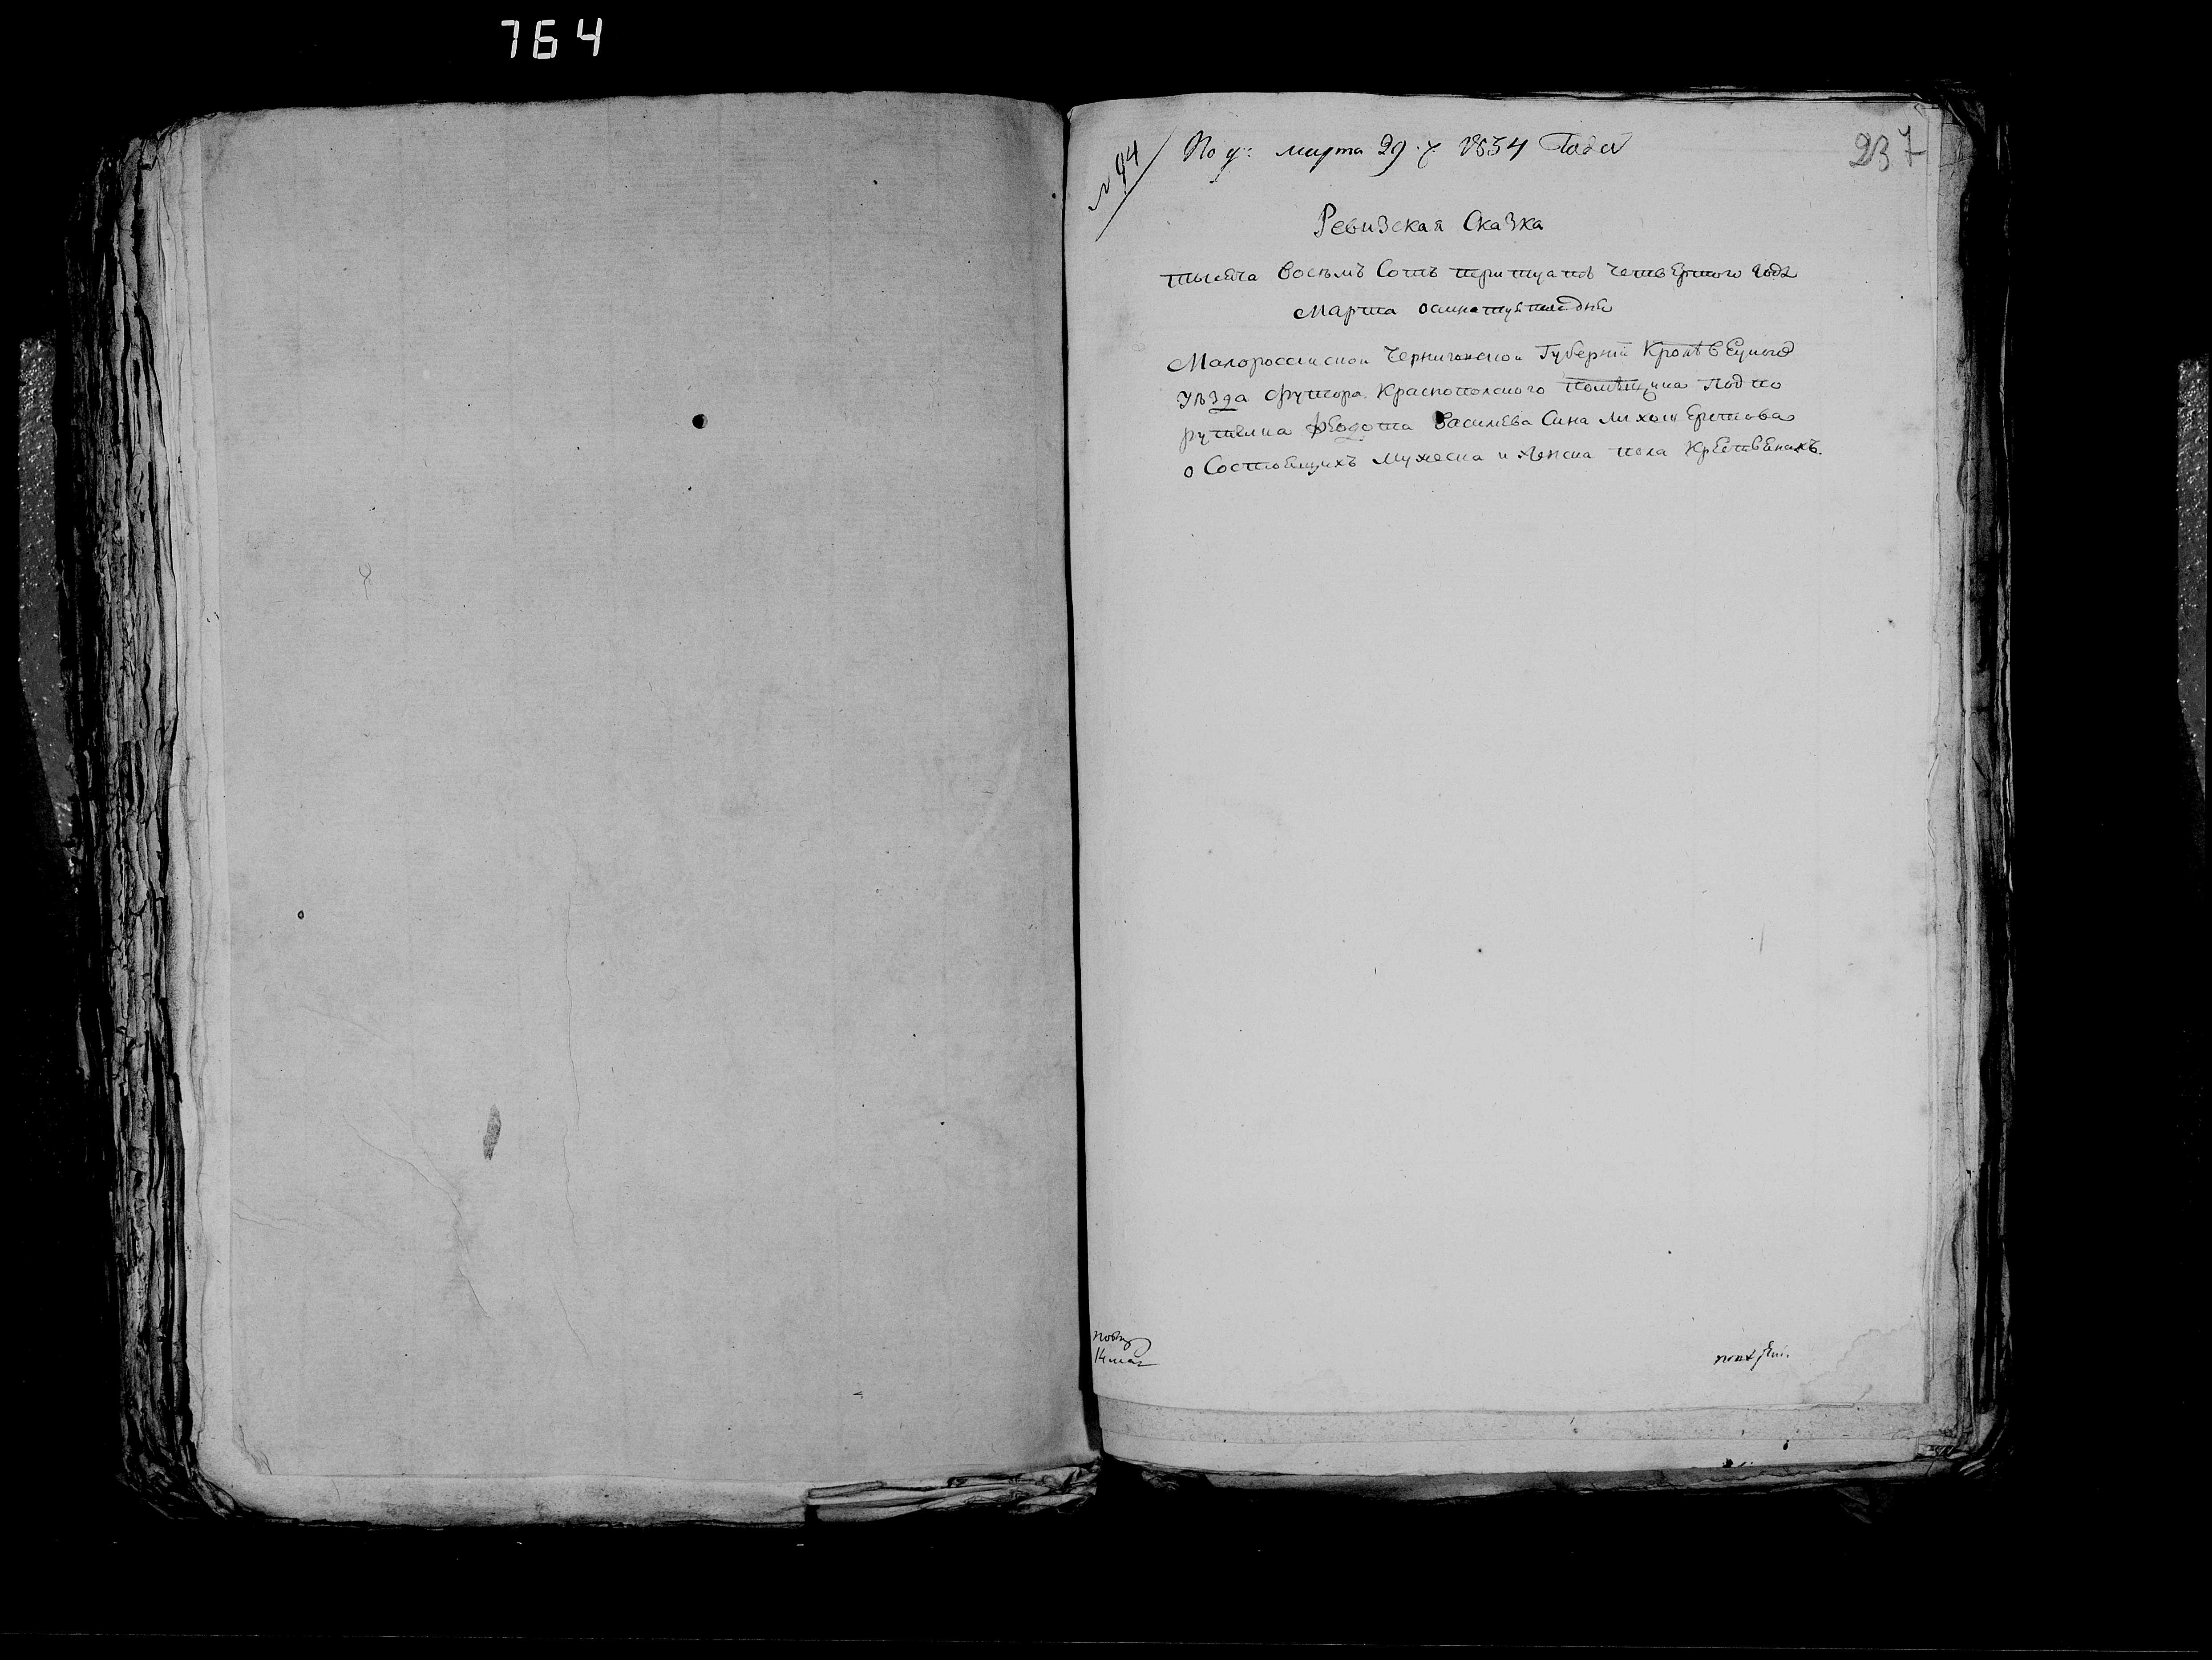 764
237
№ 94
По д: марта 29 ч. 1834 Года
Ревизская Сказка
тысяча восемъ Сотъ тритцатъ четвертого года
Марта осмнатцятого дня
Малороссиской Черниговской Губернїи Кролѣвецкого
уѣзда футора Краснополского помѣщика Подпо
рутчика Федота Василева Сина Лихошерстова
о Состоящихъ мужеска и женска пола Крествянахъ.
14 мая